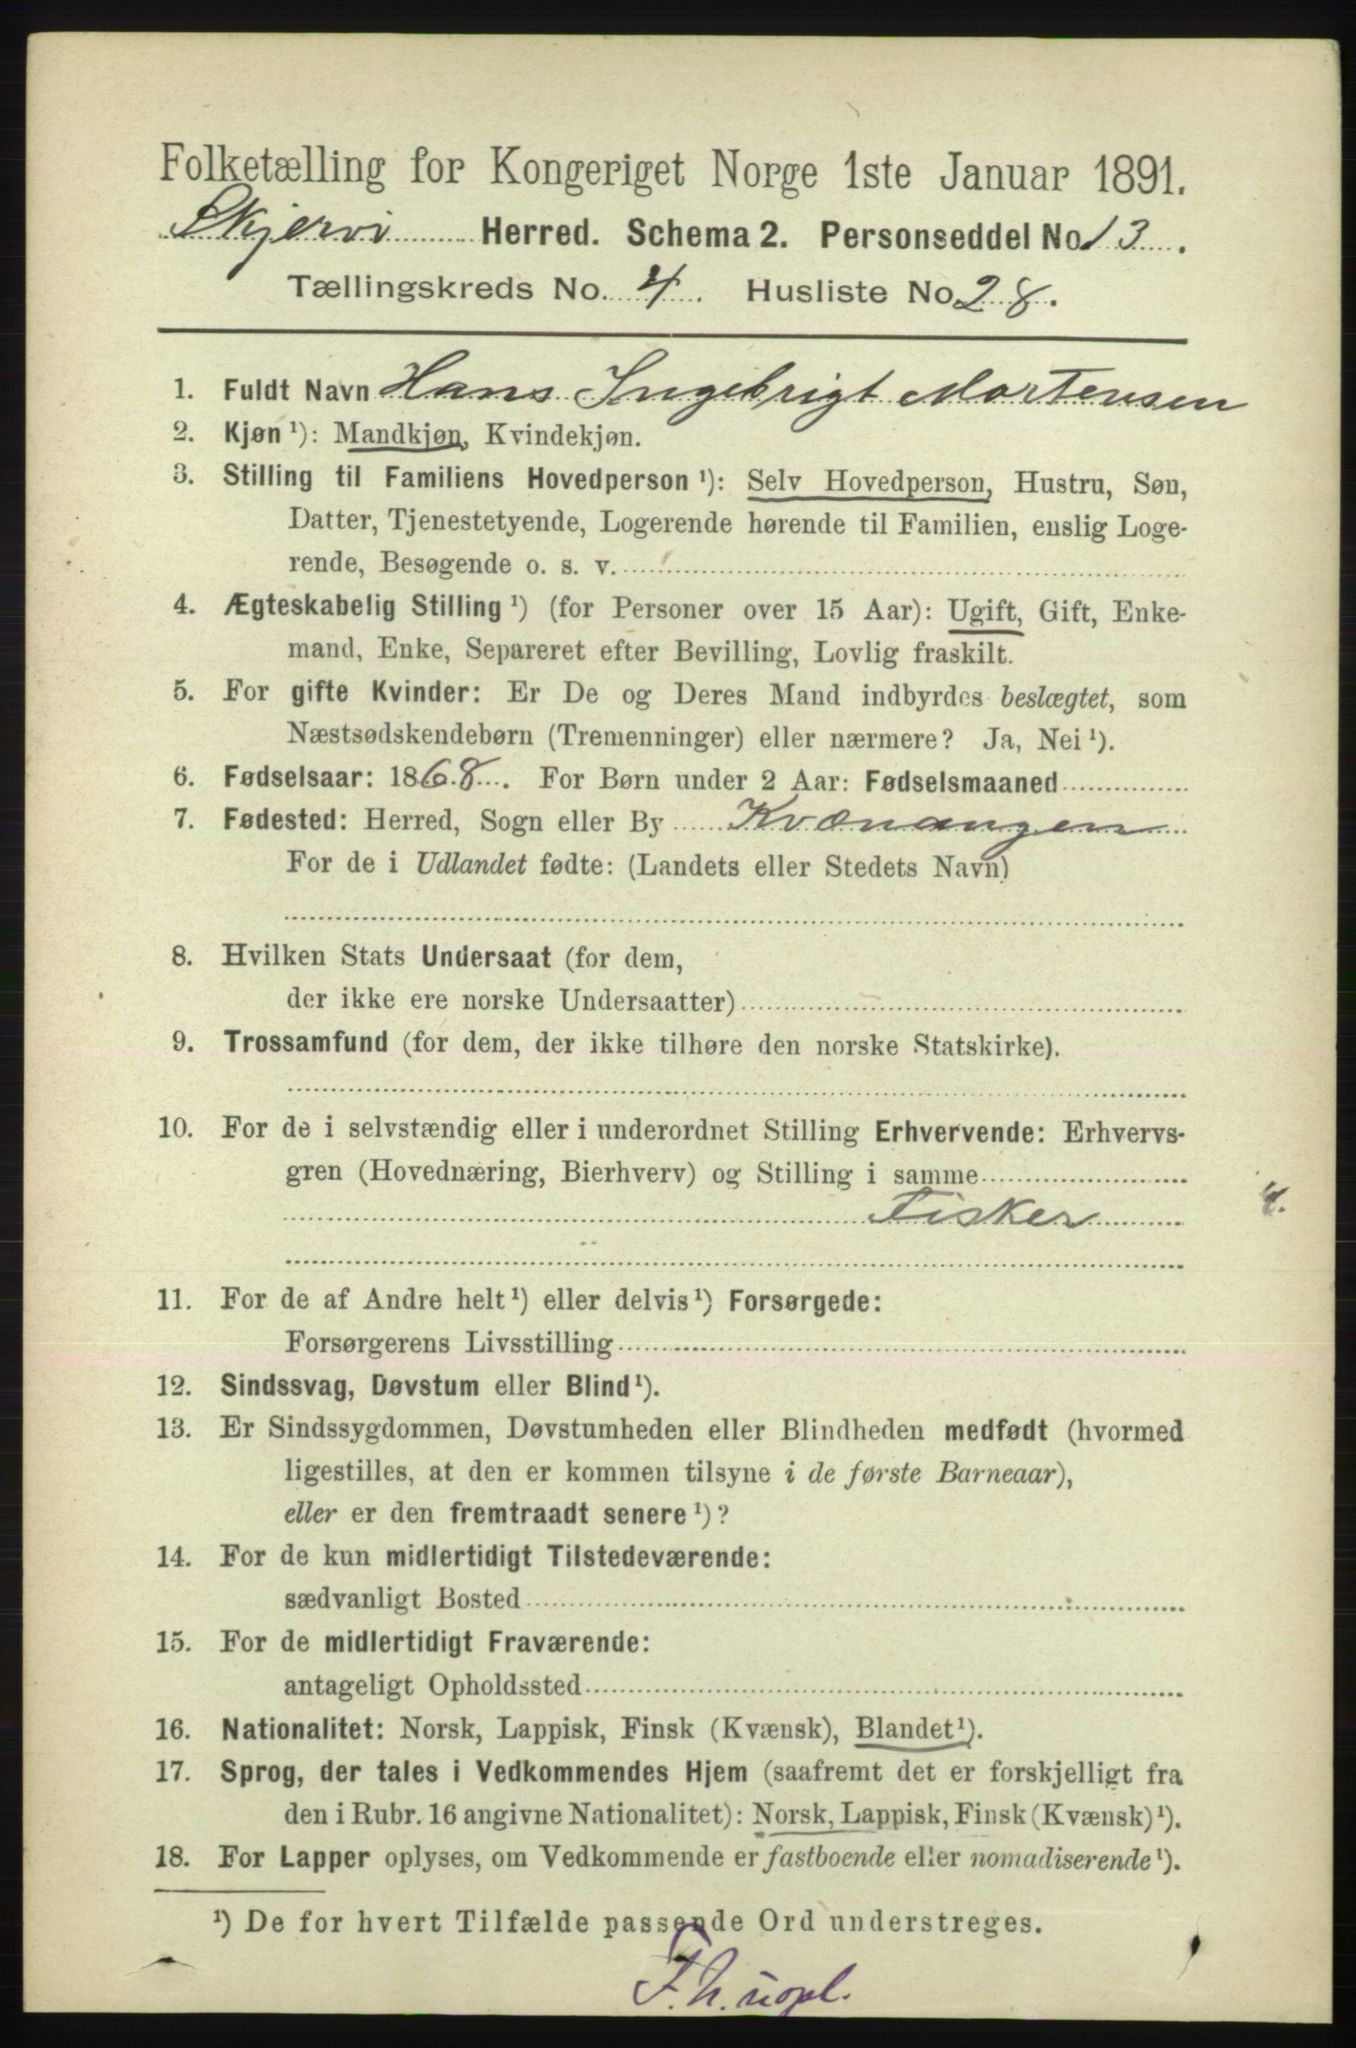 Folketælling for Kongeriget Norge 1ste Januar 1891.
Skjervø Herred. Schema 2. Personseddel No 13.
Tællingskreds No. 4. Husliste No 28.
1. Fuldt Navn Hans Ingebrigt Mortensen
2. Kjøn¹): Mandkjøn, Kvindekjøn.
3. Stilling til Familiens Hovedperson¹): Selv Hovedperson, Hustru, Søn,
Datter, Tjenestetyende, Logerende hørende til Familien, enslig Loge-
rende, Besøgende o. s. v.
4. Ægteskabelig Stilling¹) (for Personer over 15 Aar): Ugift, Gift, Enke-
mand, Enke, Separeret efter Bevilling, Lovlig fraskilt.
5. For gifte Kvinder: Er De og Deres Mand indbyrdes beslægtet, som
Næstsødskendebørn (Tremenninger) eller nærmere? Ja, Nei¹).
6. Fødselsaar: 1868. For Børn under 2 Aar: Fødselsmaaned
7. Fødested: Herred, Sogn eller By Kvænangen
For de i Udlandet fødte: (Landets eller Stedets Navn)
8. Hvilken Stats Undersaat (for dem,
der ikke ere norske Undersaatter)
9. Trossamfund (for dem, der ikke tilhøre den norske Statskirke).
10. For de i selvstændig eller i underordnet Stilling Erhvervende: Erhvervs-
gren (Hovednæring, Bierhverv) og Stilling i samme
Fisker 4.
11. For de af Andre helt¹) eller delvis¹) Forsørgede:
Forsørgerens Livsstilling
12. Sindssvag, Døvstum eller Blind¹).
13. Er Sindssygdommen, Døvstumheden eller Blindheden medfødt (hvormed
ligestilles, at den er kommen tilsyne i de første Barneaar),
eller er den fremtraadt senere¹)?
14. For de kun midlertidigt Tilstedeværende:
sædvanligt Bosted
15. For de midlertidigt Fraværende:
antageligt Opholdssted
16. Nationalitet: Norsk, Lappisk, Finsk (Kvænsk), Blandet¹).
17. Sprog, der tales i Vedkommendes Hjem (saafremt det er forskjelligt fra
den i Rubr. 16 angivne Nationalitet): Norsk, Lappisk, Finsk (Kvænsk)¹).
18. For Lapper oplyses, om Vedkommende er fastboende eller nomadiserende¹).
¹) De for hvert Tilfælde passende Ord understreges.